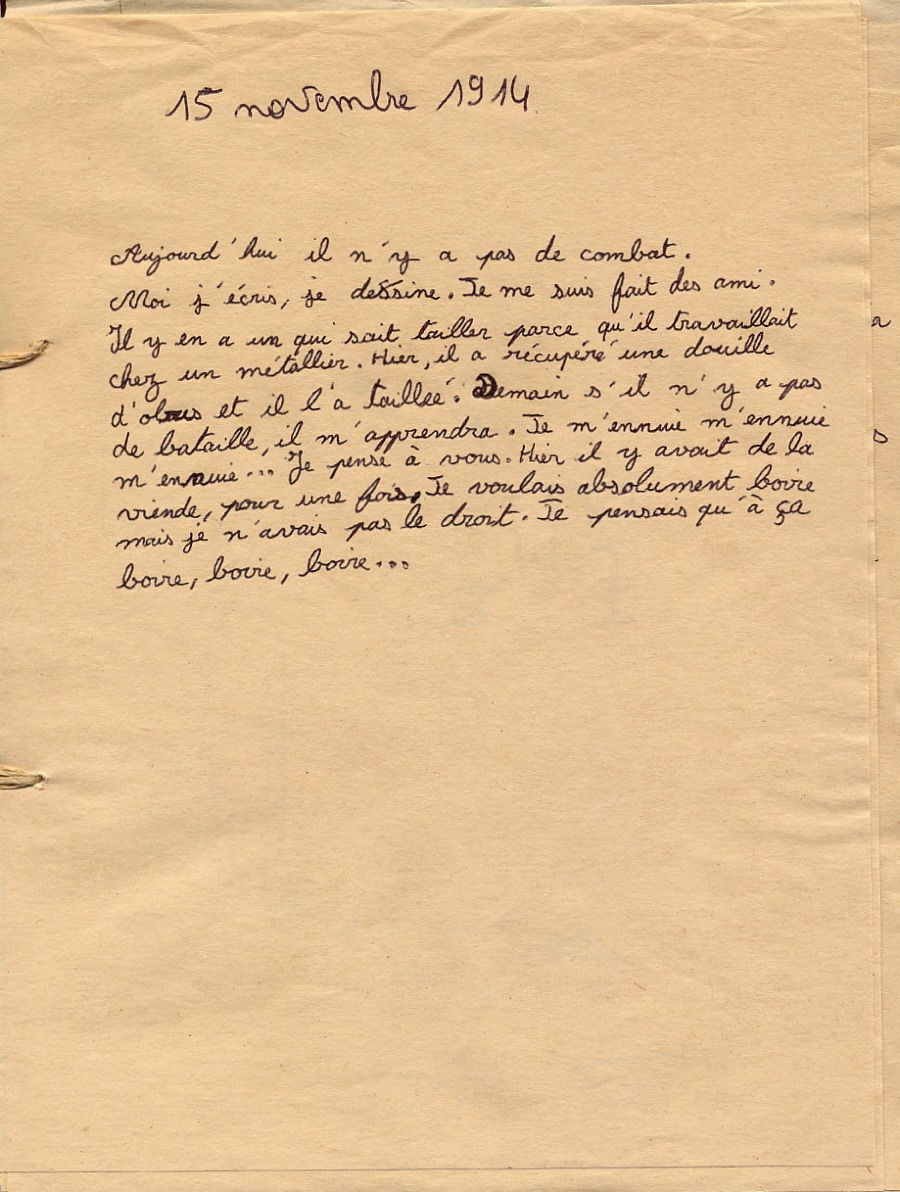 15 novembre 1914
Aujourd'hui il n'y a pas de combat.
Moi j'écris, je dessine. Je me suis fait des ami.
Il y en a un qui sait tailler parce qu'il travaillait
chez un métallier. Hier, il a récupéré une douille
d'obus et il l'a taillée. Demain s'il n'y a pas
de bataille, il m'apprendra. Je m'ennuie m'ennuie
m'ennuie... Je pense à vous. Hier il y avait de la
viende, pour une fois. Je voulais absolument boire
mais je n'avais pas le droit. Je pensais qu'à ça
boire, boire, boire...
a